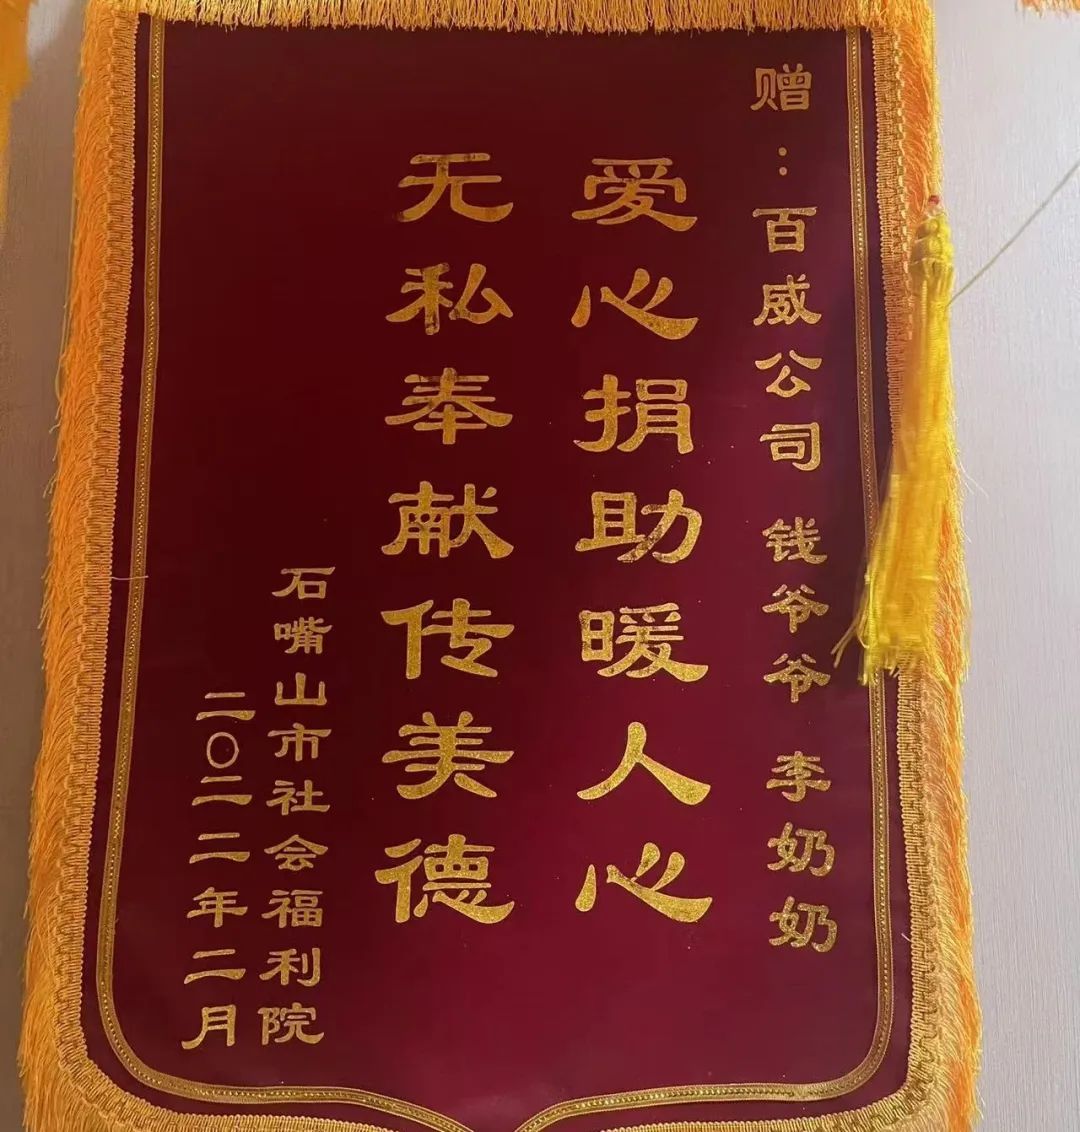 赠：百威公司 钱爷爷 李奶奶
爱心捐助暖人心
无私奉献传美德
石嘴山市社会福利院
二〇二二年二月